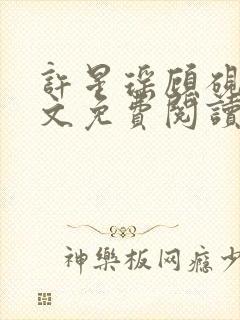 許星琛顧硯
文免費閱讀
神樂板网瘾少